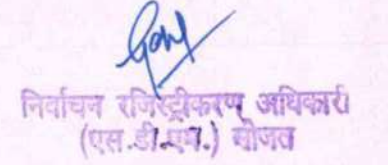 निर्वाचन रजिस्ट्रीकरण अधिकारी
(एस.डी.एम.) सोजत